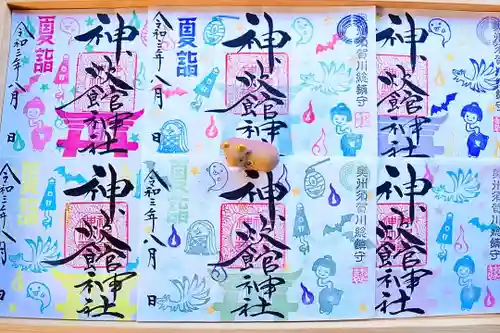 夏詣
令和三年八月 日
神炊館神社
夏詣
令和三年八月 日
神炊館神社
奥州須賀川総鎮守
神炊館神社
夏詣
令和三年八月 日
神炊館神社
夏詣
令和三年八月 日
神炊館神社
奥州須賀川総鎮守
神炊館神社